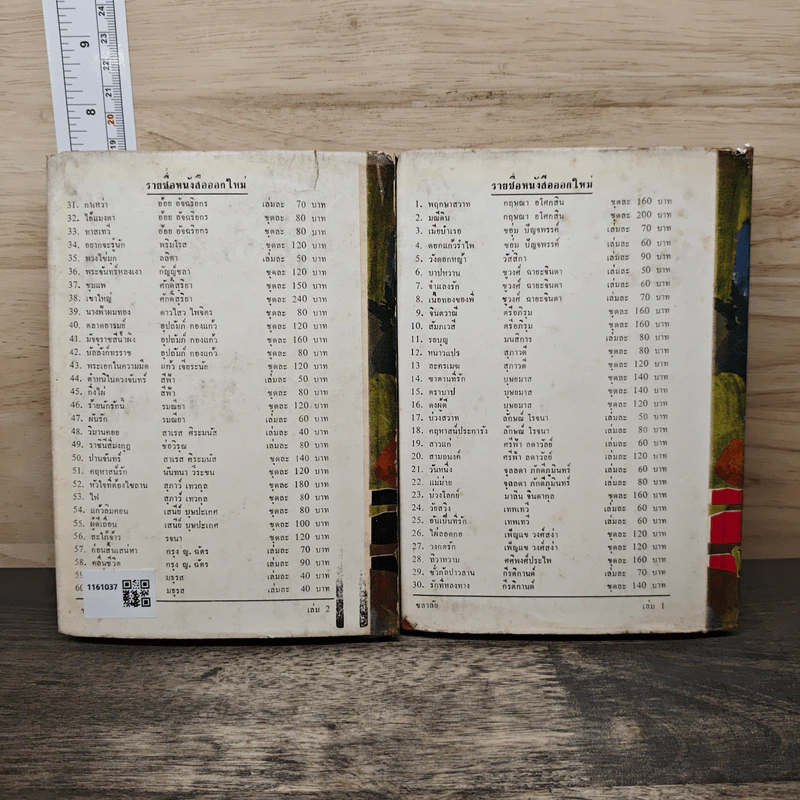 รายชื่อหนังสือออกใหม่
31. กาเหว่า อ้อย อัจฉริยกร เล่มละ 70 บาท
32. ไอ้แมงดา อ้อย อัจฉริยกร ชุดละ 80 บาท
33. ทาสเทวี อ้อย อัจฉริยกร ชุดละ 80 บาท
34. อยากจะรู้นัก พริมโรส ชุดละ 120 บาท
35. พวงไข่มุก ลลิตา เล่มละ 50 บาท
36. พระจันทร์หลงเงา กัญญ์ชลา ชุดละ 120 บาท
37. ชุมแพ ศักดิ์สุริยา ชุดละ 150 บาท
38. เขาใหญ่ ศักดิ์สุริยา ชุดละ 240 บาท
39. นางฟ้าผมทอง ดาวไสว ไพจิตร ชุดละ 80 บาท
40. ตลาดอารมย์ อุปถัมภ์ กองแก้ว ชุดละ 120 บาท
41. มัจจุราชสีน้ำผึ้ง อุปถัมภ์ กองแก้ว ชุดละ 160 บาท
42. บัลลังก์ทรราช อุปถัมภ์ กองแก้ว ชุดละ 80 บาท
43. พระเอกในความมืด แก้ว เจียระนัย ชุดละ 120 บาท
44. ตำหนิในดวงจันทร์ สีฟ้า เล่มละ 50 บาท
45. กิ่งไผ่ สีฟ้า ชุดละ 80 บาท
46. ร้ายนักรักนี้ รมณียา ชุดละ 120 บาท
47. ผันรัก รมณียา เล่มละ 60 บาท
48. วิมานคอย สาเรส ศิระมนัส เล่มละ 40 บาท
49. ราชินีสีมงกุฎ ช่อวิรุณ เล่มละ 80 บาท
50. ปานจันทร์ สาเรส ศิระมนัส ชุดละ 140 บาท
51. คฤหาสน์รัก นันทนา วีระชน ชุดละ 120 บาท
52. หัวใจที่ต้องไขลาน สุภาว์ เทวกุล ชุดละ 180 บาท
53. ไฟ สุภาว์ เทวกุล ชุดละ 80 บาท
54. แก้วลืมคอน เสนีย์ บุษปะเกศ ชุดละ 80 บาท
55. ผู้ดีเถื่อน เสนีย์ บุษปะเกศ ชุดละ 100 บาท
56. สะใภ้จ้าว รจนา ชุดละ 120 บาท
57. ก่อนสิ้นเสน่หา กรุง ญ. ฉัตร เล่มละ 70 บาท
58. คลื่นชีวิต กรุง ญ. ฉัตร เล่มละ 90 บาท
59 มธุรส เล่มละ 40 บาท
60 มธุรส เล่มละ 40 บาท
1161037
เล่ม 2
รายชื่อหนังสือออกใหม่
1. พฤกษาสวาท กฤษณา อโศกสิน ชุดละ 160 บาท
2. มณีดิน กฤษณา อโศกสิน ชุดละ 200 บาท
3. เมียบำเรอ ชอุ่ม ปัญจพรรค์ เล่มละ 70 บาท
4. ดอกแก้วรำไพ ชอุ่ม ปัญจพรรค์ เล่มละ 60 บาท
5. วังดอกหญ้า วัสสิกา เล่มละ 90 บาท
6. บาปหวาน ชูวงศ์ ฉายะจินดา เล่มละ 50 บาท
7. จำแลงรัก ชูวงศ์ ฉายะจินดา เล่มละ 60 บาท
8. เนื้อทองของพี่ ชูวงศ์ ฉายะจินดา เล่มละ 70 บาท
9. จินดาวาณี ตรีอภิรุม ชุดละ 160 บาท
10. สัมภเวสี ตรีอภิรุม ชุดละ 160 บาท
11. รอบุญ มนสิการ เล่มละ 80 บาท
12. หนาวแปร สุภาวดี ชุดละ 80 บาท
13 ละครเมฆ สุภาวดี ชุดละ 120 บาท
14. ซาตานที่รัก บุษยมาส ชุดละ 140 บาท
15. ตราบาป บุษยมาส ชุดละ 140 บาท
16. ดงผู้ดี บุษยมาส ชุดละ 120 บาท
17. บ่วงสวาท ลักษณ์ โรจนา เล่มละ 50 บาท
18. คฤหาสน์ประการัง ลักษณ์ โรจนา ชุดละ 80 บาท
19. สาวแก่ ศรีฟ้า ลดาวัลย์ เล่มละ 60 บาท
20. สามอนงค์ ศรีฟ้า ลดาวัลย์ เล่มละ 60 บาท
21. วันหนึ่ง จุลลดา ภักดีภูมินทร์ เล่มละ 60 บาท
22. แม่ม่าย จุลลดา ภักดีภูมินทร์ เล่มละ 80 บาท
23. บ่วงโลกย์ มาลิน จินดากุล ชุดละ 160 บาท
24. วัยสวิง เทพเทวี เล่มละ 60 บาท
25. อันเป็นที่รัก เทพเทวี เล่มละ 60 บาท
26. ไผ่ลอดกอ เพ็ญแข วงศ์สง่า ชุดละ 120 บาท
27. วงกตรัก เพ็ญแข วงศ์สง่า ชุดละ 120 บาท
28. ทิวาหวาม ศศิพงศ์ประไพ ชุดละ 160 บาท
29. ชั่วกัลปาวสาน กีรติกานต์ เล่มละ 70 บาท
30. รักที่หลงทาง กีรติกานต์ ชุดละ 140 บาท
ชลาลัย เล่ม 1